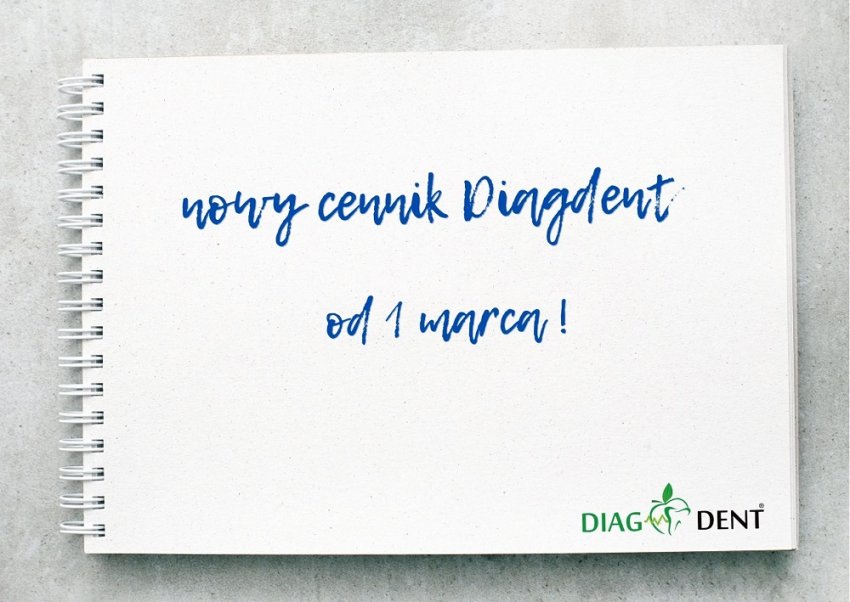 nowy cennik Diagdent
od 1 marca!
DIAG DENT®